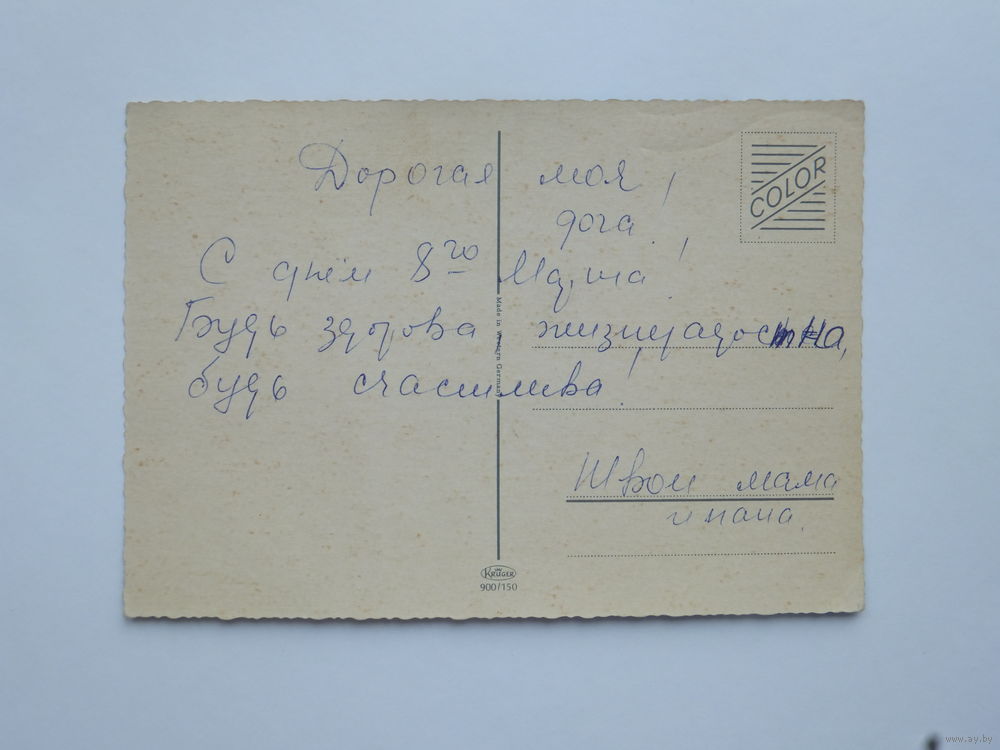 Дорогая моя,
доча!
С днём 8го Марта!
Будь здорова, жизнерадостна,
будь счастлива!
Твои мама
и папа.
COLOR
Made in Western Germany
KRÜGER
900/150
www.ay.by